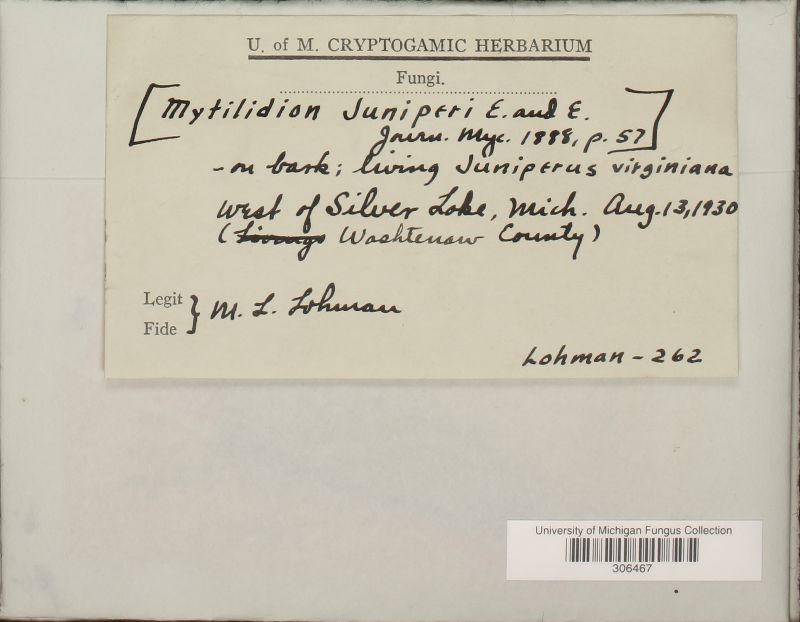 U. of M. CRYPTOGAMIC HERBARIUM
Fungi.
[Mytilidion Juniperi E. and E.
Journ. Myc. 1888, p. 57]
- on bark; living Juniperus virginiana
West of Silver Lake, Mich. Aug. 13, 1930
(Livings Washtenaw County)
Legit
Fide } M. L. Lohman
Lohman - 262
University of Michigan Fungus Collection
306467